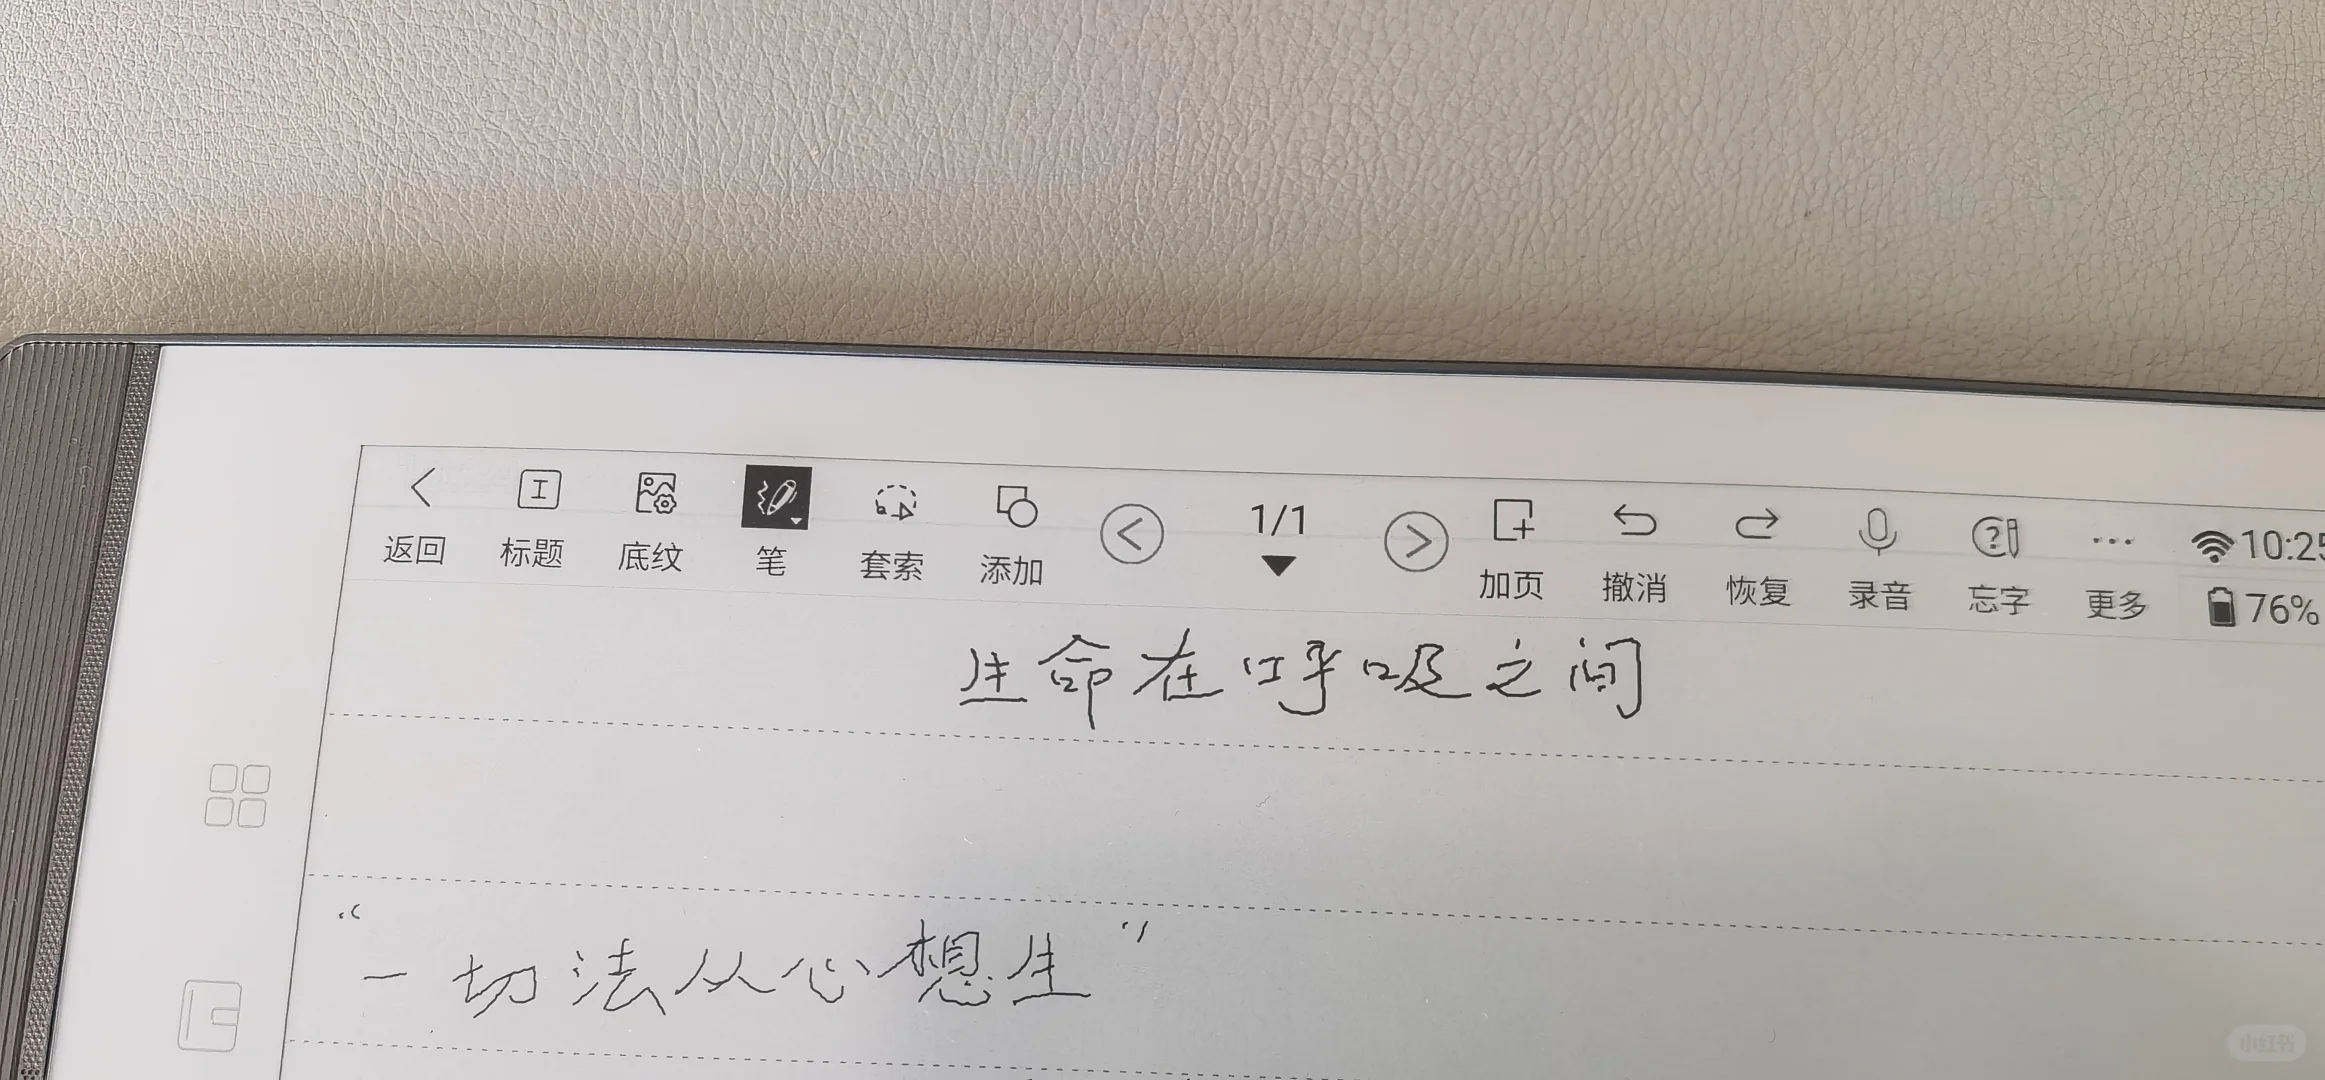 1/1
10:25
返回 标题 底纹 笔 套索 添加 加页 撤消 恢复 录音 忘字 更多 76%
生命在呼吸之间
“一切法从心想生”
小红书